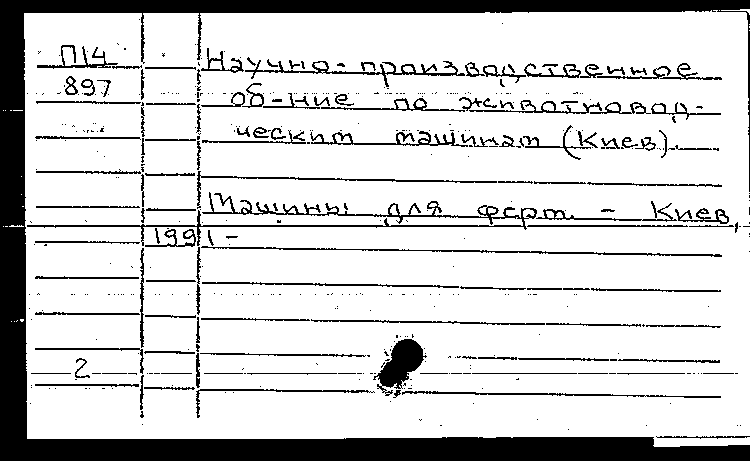 П14
897
Научно-производственное
об-ние по животновод-
ческим машинам (Киев).
Машины для ферм. - Киев,
1991 -
2